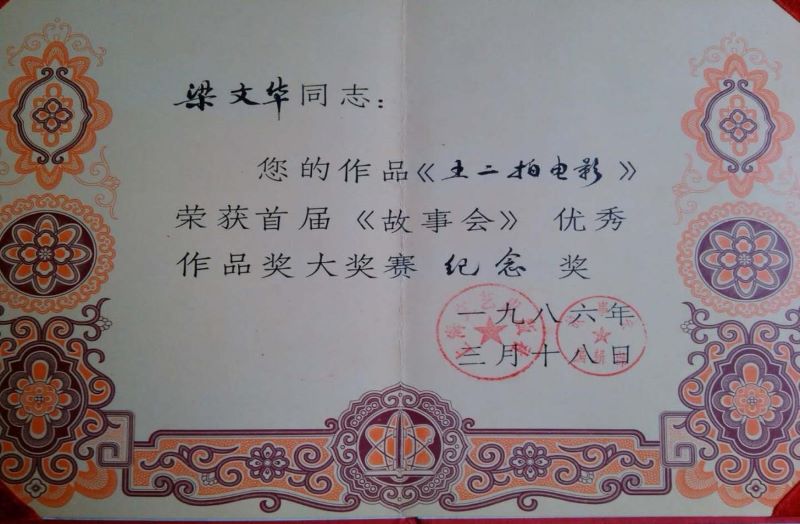 梁文华同志：
您的作品《王二拍电影》
荣获首届《故事会》优秀
作品奖大奖赛纪念奖
一九八六年
三月十八日